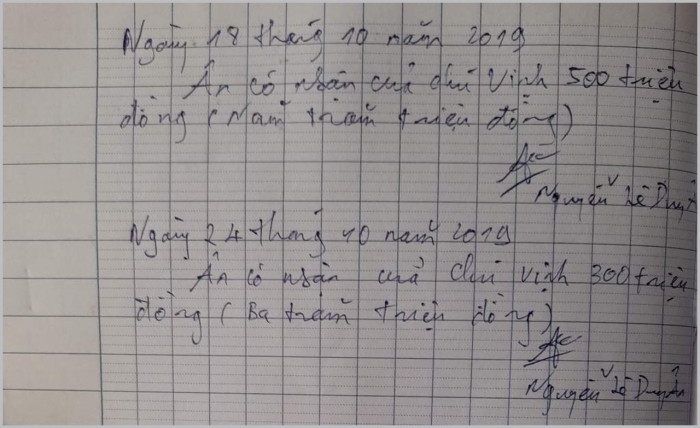 Ngày 18 tháng 10 năm 2019
Ân có nhận của chú Vinh 500 triệu
đồng (Năm trăm triệu đồng)
Nguyễn Lê
Ngày 24 tháng 10 năm 2019
Ân có nhận của chú Vinh 300 triệu
đồng (Ba trăm triệu đồng)
Nguyễn Lê